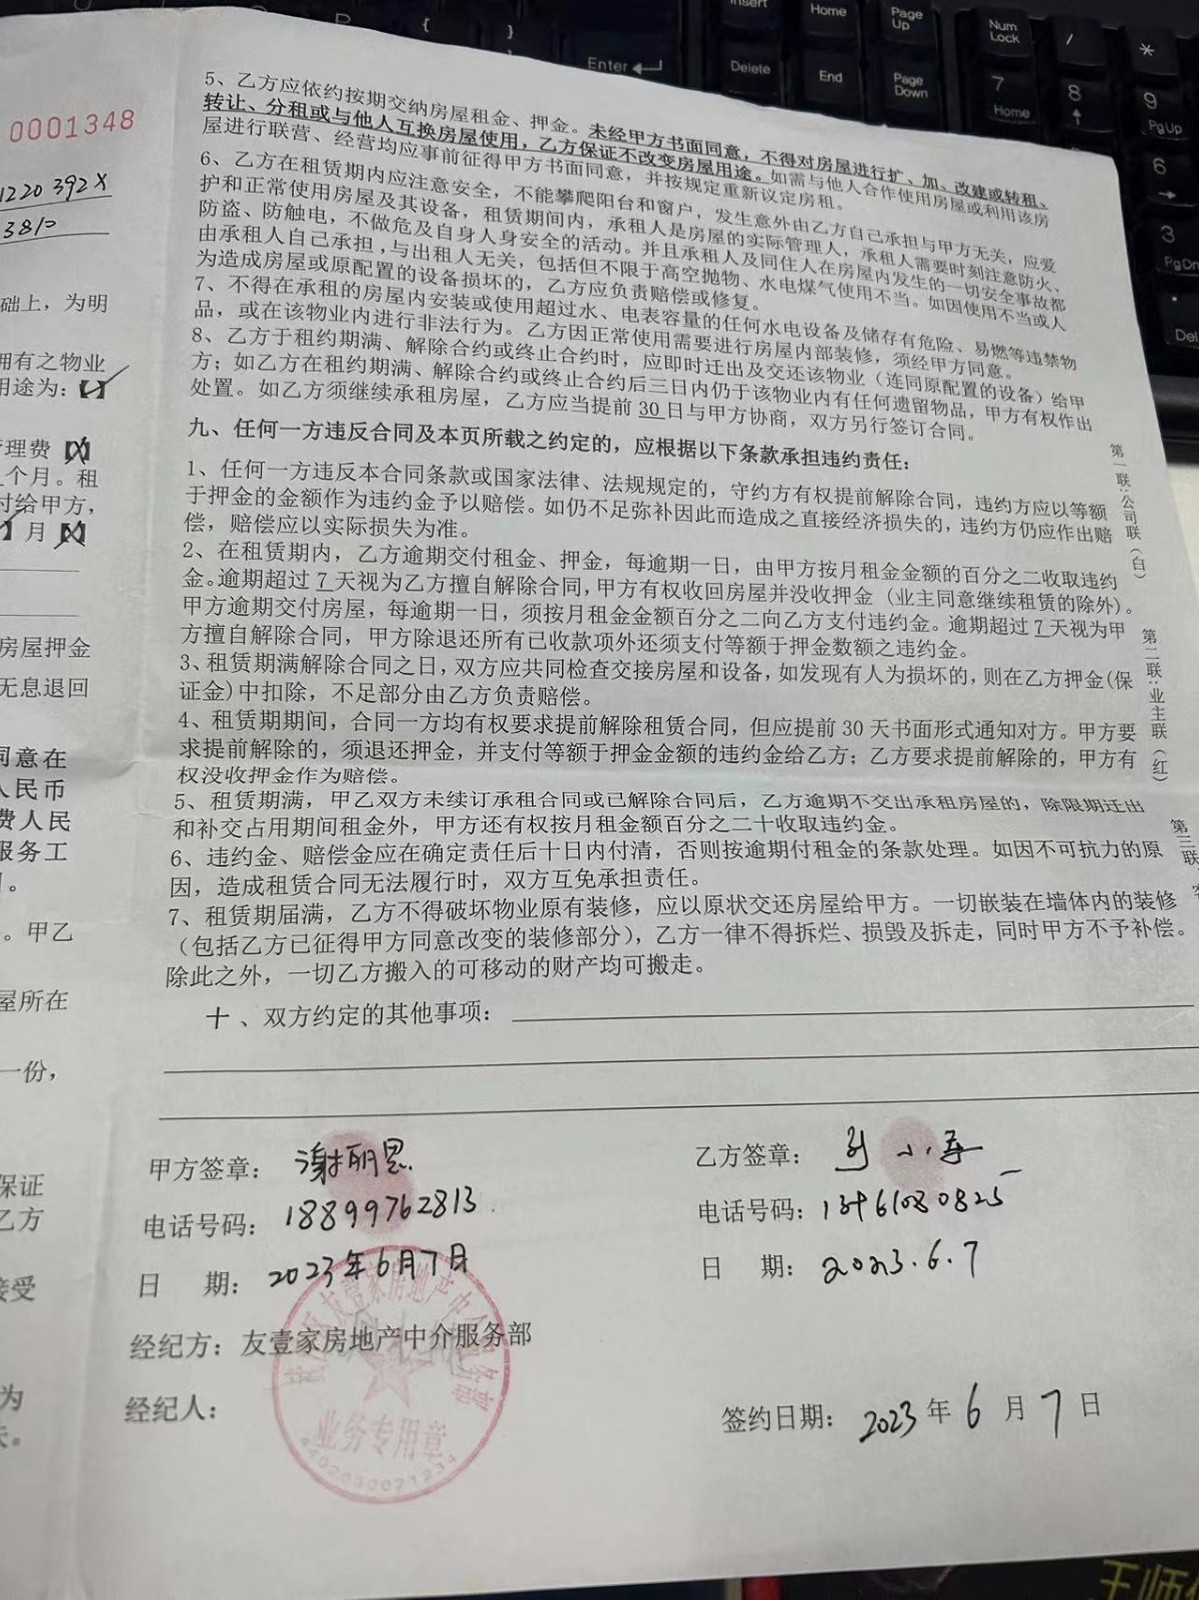 0001348
1220 392X
3810
础上，为明
拥有之物业
用途为：【 】
管理费【 】
个月。租
付给甲方，
】月【 】
房屋押金
无息退回
同意在
人民币
费人民
服务工
。甲乙
屋所在
一份，
保证
乙方
接受
为
5、乙方应依约按期交纳房屋租金、押金。未经甲方书面同意，不得对房屋进行扩、加、改建或转租、
转让、分租或与他人互换房屋使用，乙方保证不改变房屋用途。如需与他人合作使用房屋或利用该房
屋进行联营、经营均应事前征得甲方书面同意，并按规定重新议定房租。
6、乙方在租赁期内应注意安全，不能攀爬阳台和窗户，发生意外由乙方自己承担与甲方无关，应爱
护和正常使用房屋及其设备，租赁期间内，承租人是房屋的实际管理人，承租人需要时刻注意防火、
防盗、防触电，不做危及自身人身安全的活动。并且承租人及同住人在房屋内发生的一切安全事故都
由承租人自己承担,与出租人无关，包括但不限于高空抛物、水电煤气使用不当。如因使用不当或人
为造成房屋或原配置的设备损坏的，乙方应负责赔偿或修复。
7、不得在承租的房屋内安装或使用超过水、电表容量的任何水电设备及储存有危险、易燃等违禁物
品，或在该物业内进行非法行为。乙方因正常使用需要进行房屋内部装修，须经甲方同意。
8、乙方于租约期满、解除合约或终止合约时，应即时迁出及交还该物业（连同原配置的设备）给甲
方；如乙方在租约期满、解除合约或终止合约后三日内仍于该物业内有任何遗留物品，甲方有权作出
处置。如乙方须继续承租房屋，乙方应当提前 30 日与甲方协商，双方另行签订合同。
九、任何一方违反合同及本页所载之约定的，应根据以下条款承担违约责任：
1、任何一方违反本合同条款或国家法律、法规规定的，守约方有权提前解除合同，违约方应以等额
于押金的金额作为违约金予以赔偿。如仍不足弥补因此而造成之直接经济损失的，违约方仍应作出赔
偿，赔偿应以实际损失为准。
2、在租赁期内，乙方逾期交付租金、押金，每逾期一日，由甲方按月租金金额的百分之二收取违约
金。逾期超过 7 天视为乙方擅自解除合同，甲方有权收回房屋并没收押金（业主同意继续租赁的除外）。
甲方逾期交付房屋，每逾期一日，须按月租金金额百分之二向乙方支付违约金。逾期超过 7 天视为甲
方擅自解除合同，甲方除退还所有已收款项外还须支付等额于押金数额之违约金。
3、租赁期满解除合同之日，双方应共同检查交接房屋和设备，如发现有人为损坏的，则在乙方押金(保
证金)中扣除，不足部分由乙方负责赔偿。
4、租赁期期间，合同一方均有权要求提前解除租赁合同，但应提前 30 天书面形式通知对方。甲方要
求提前解除的，须退还押金，并支付等额于押金金额的违约金给乙方；乙方要求提前解除的，甲方有
权没收押金作为赔偿。
5、租赁期满，甲乙双方未续订承租合同或已解除合同后，乙方逾期不交出承租房屋的，除限期迁出
和补交占用期间租金外，甲方还有权按月租金额百分之二十收取违约金。
6、违约金、赔偿金应在确定责任后十日内付清，否则按逾期付租金的条款处理。如因不可抗力的原
因，造成租赁合同无法履行时，双方互免承担责任。
7、租赁期届满，乙方不得破坏物业原有装修，应以原状交还房屋给甲方。一切嵌装在墙体内的装修
（包括乙方已征得甲方同意改变的装修部分），乙方一律不得拆烂、损毁及拆走，同时甲方不予补偿。
除此之外，一切乙方搬入的可移动的财产均可搬走。
十、双方约定的其他事项：
第一联：公司联（白）
第二联：业主联（红）
第三联：
甲方签章：谢丽恩
电话号码：18899762813
日 期：2023年6月7日
经纪方：友壹家房地产中介服务部
经纪人：
乙方签章：小
电话号码：
日 期：2023.6.7
签约日期：2023年6月7日
友壹家房地产中介服务部
业务专用章
Insert
Home
Page Up
Num Lock
/
*
Enter
Delete
End
Page Down
7 Home
8
9 PgUp
6
3 PgDn
Del
{
}